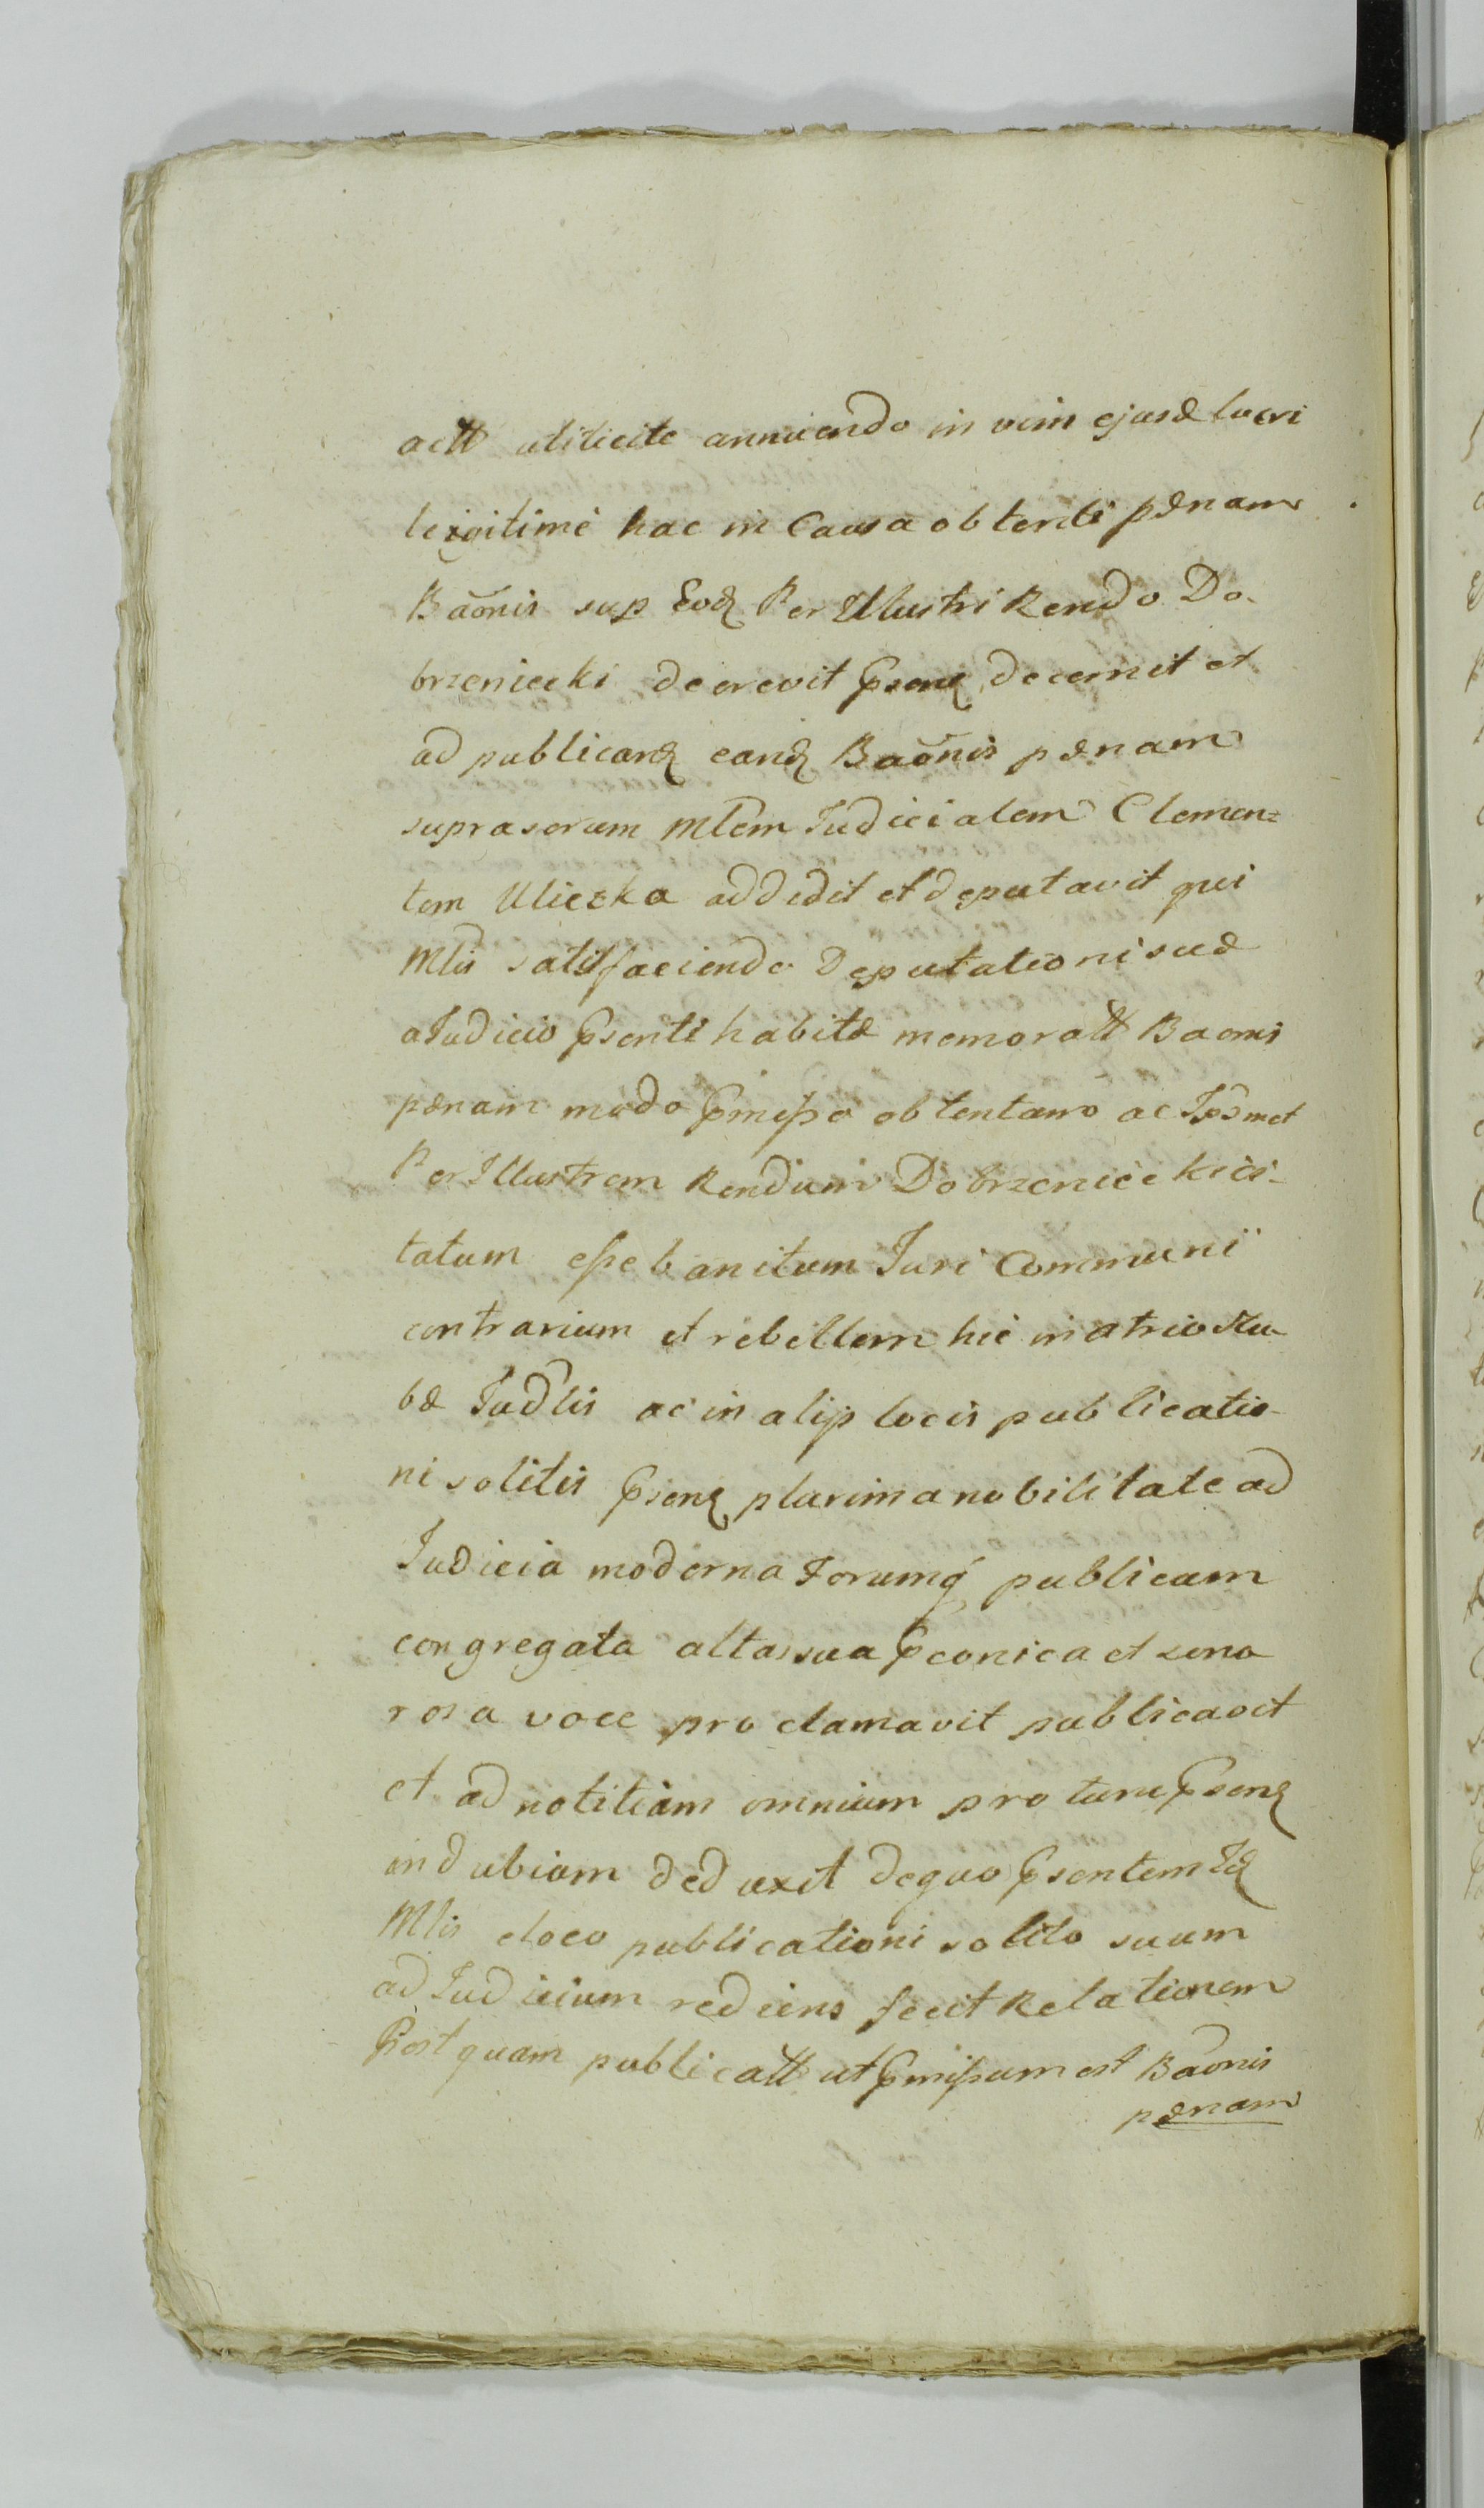 actt utilicite annuendo in vim ejusd lucri
legitimé hac in Causa obtenti pænam
Baõnis sup Eod Per Illustri Rendo Do-
brzeniecki decrevit pñsenq decernit et
ad publicand eand Baõnis pænam
suprascrum Mlem Judicialem Clemen=
tem Uliczka addidit et deputavit qui
Mlis satisfaciendo Deputationi suæ
a Judicio pñsenti habitæ memoratt Baonis
pænam modo pmisso obtentam ac Ipsmet
Per Illustrem Rendum Dobrzeniecki ci-
tatum esse banitum Juri Communi
contrarium et rebellem hic in atrio Stu-
bæ Judlis ac in alijs locis publicatio-
ni solitis pñsenq plurima nobilitate ad
Judicia moderna Forumq publicum
congregata alta sua pconica et sono
rosa voce proclamavit publicavit
et ad notitiam omnium pro tunc pñsenq
indubiam deduxit de quo pñsentem Id
Mlis eloco publicationi solito suum
ad Judicium rediens fecit Relationem
Post quam publicatt ut pmissum est Baonis
pænam